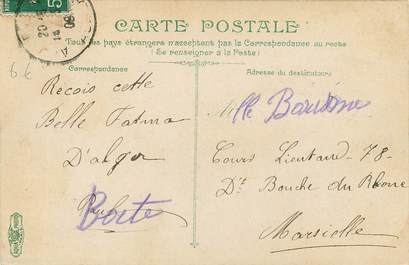 CARTE POSTALE
Tous les pays étrangers n'acceptent pas la Correspondance au recto
(Se renseigner à la Poste)
Correspondance
Adresse du destinataire
6 €
Recois cette
Belle Fatma
D'alger
Berte
Mlle
Cours Lieutaud - 78 -
Dt Bouche du Rhone
Marsielle
5
08